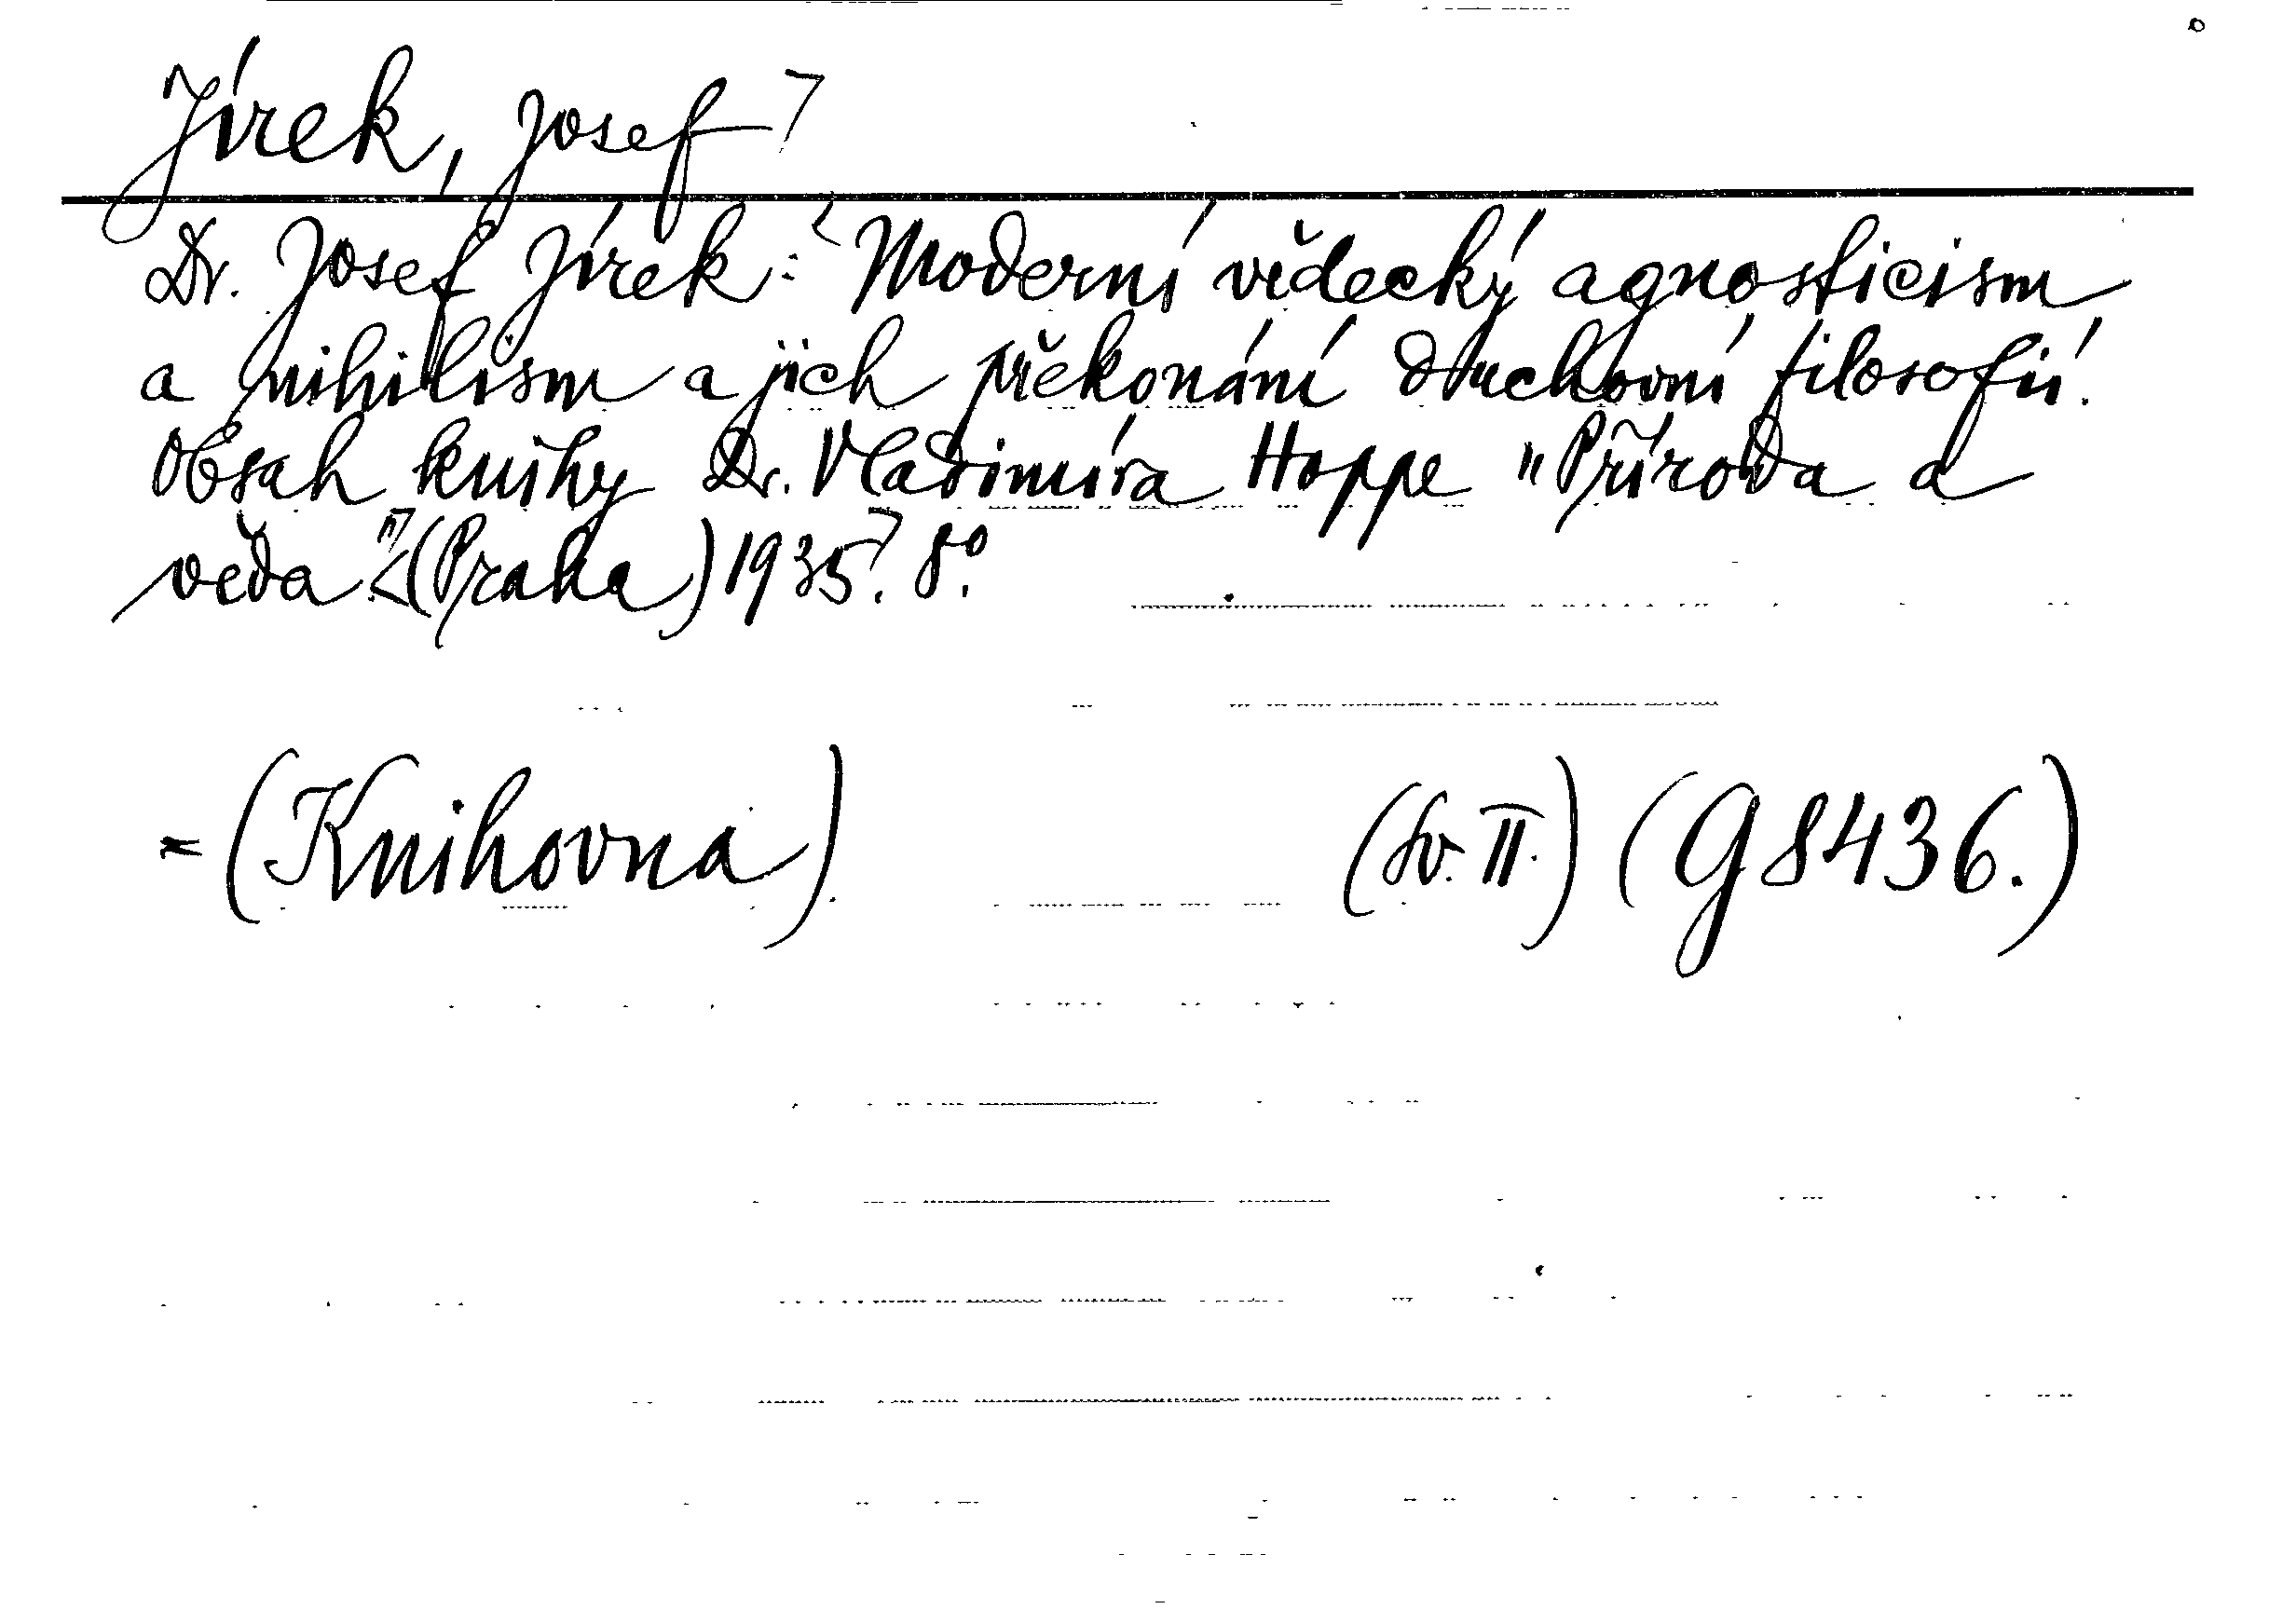 Jírek, Josef
Dr. Josef Jírek: Moderní vědecký agnosticism
a nihilism a jich překonání duchovní filosofií.
Obsah knihy Dr. Vladimíra Hoppe "Příroda a
věda". (Praha) 1935. 8°.
= (Knihovna) (Sv. II.) (G 8436.)